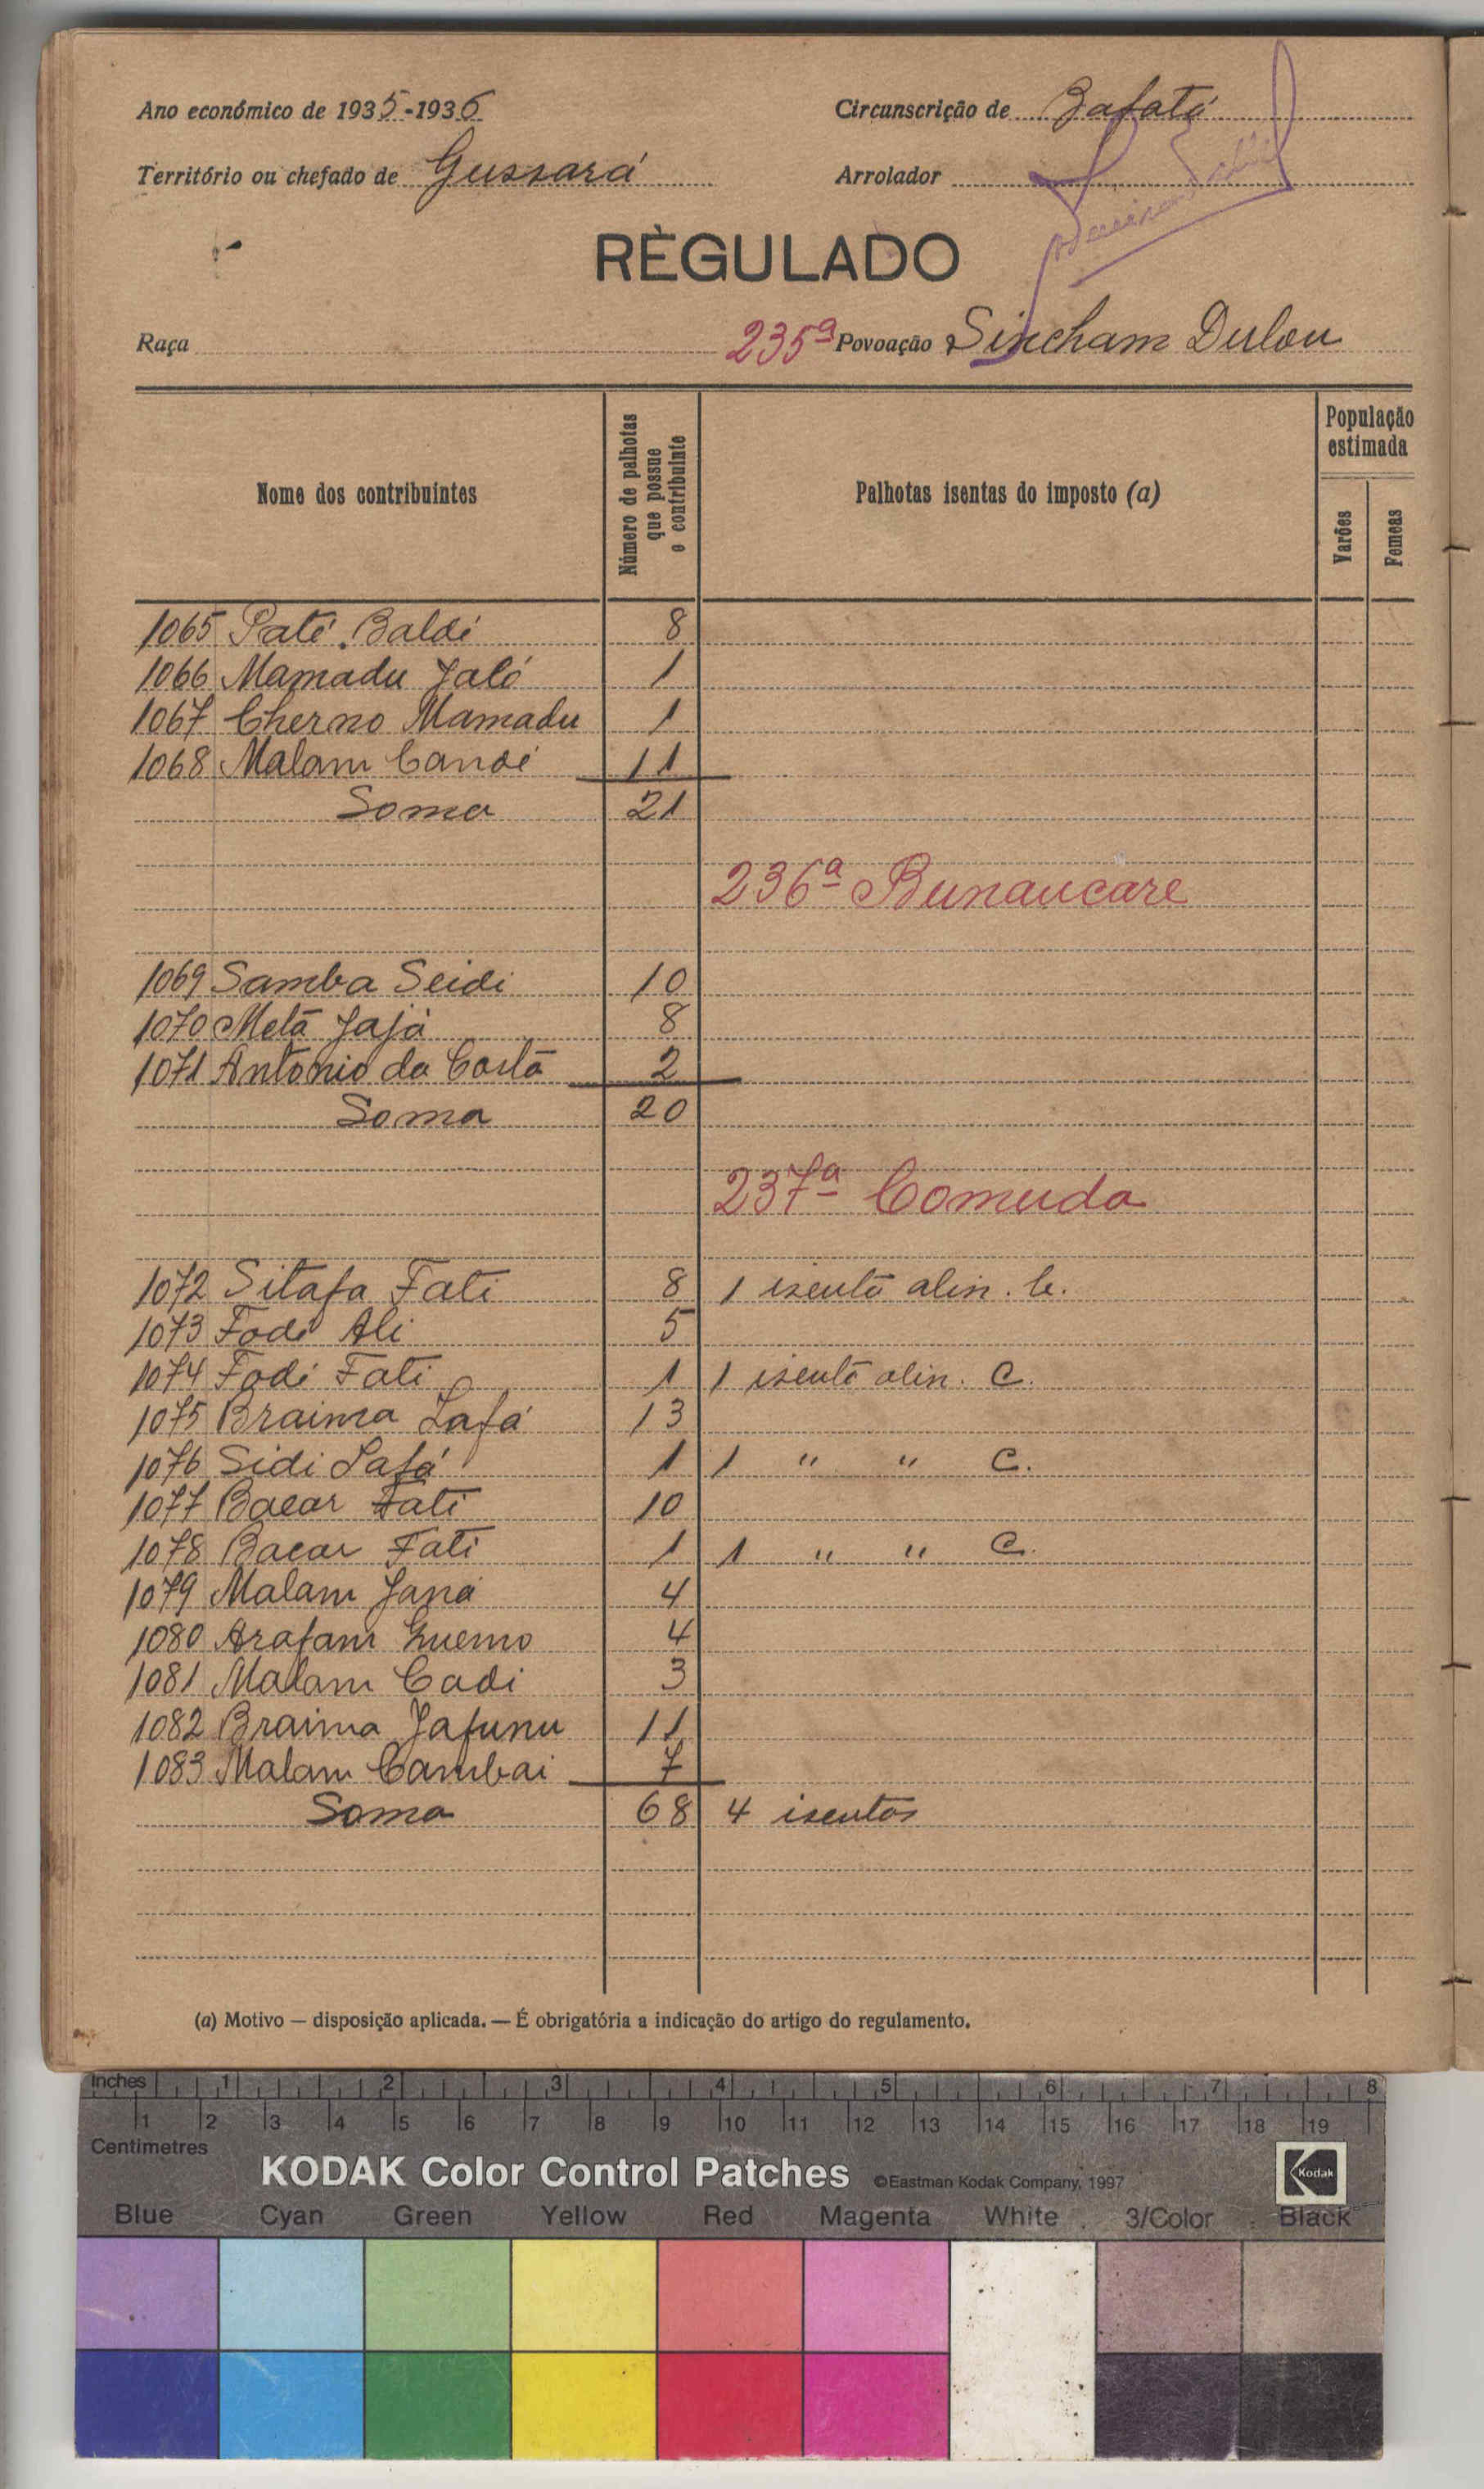 Ano económico de 1935-1936
Circunscrição de Bafatá
Território ou chefado de Gussará
Arrolador
RÈGULADO
Raça
235ª Povoação Sincham Dulou
Nome dos contribuintes
Número de palhotas que possue o contribuinte
Palhotas isentas do imposto (a)
População estimada
Varões
Femeas
1065 Paté Baldé 8
1066 Mamadu Jaló 1
1067 Cherno Mamadu 1
1068 Malam Candé 11
Soma 21
236ª Bunaucare
1069 Samba Seidi 10
1070 Metá Jajá 8
1071 Antonio da Costa 2
Soma 20
237ª Comuda
1072 Sitafa Fati 8 1 isento alin. b.
1073 Fodé Ali 5
1074 Fodé Fati 1 1 isento alin. C.
1075 Braima Lafá 13
1076 Sidi Lafá 1 1 " " C.
1077 Bacar Fati 10
1078 Bacar Fati 1 1 " " C.
1079 Malam Janá 4
1080 Arafam Guemo 4
1081 Malam Cadi 3
1082 Braima Jafunu 11
1083 Malam Cambai 7
Soma 68 4 isentos
(a) Motivo — disposição aplicada. — É obrigatória a indicação do artigo do regulamento.
Inches 1 2 3 4 5 6 7 8
1 2 3 4 5 6 7 8 9 10 11 12 13 14 15 16 17 18 19
Centimetres
KODAK Color Control Patches ©Eastman Kodak Company, 1997
Kodak
Blue Cyan Green Yellow Red Magenta White 3/Color Black